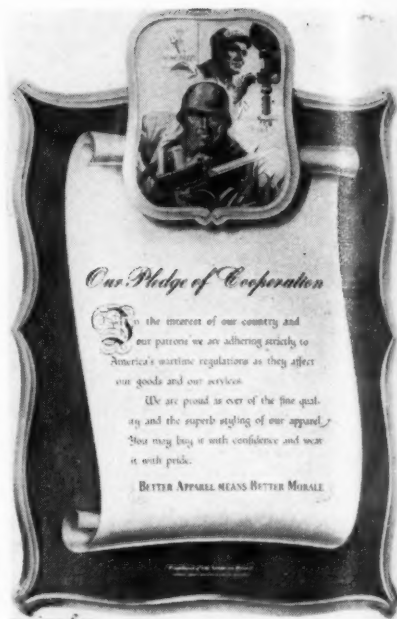 Our Pledge of Cooperation
In the interest of our country and
our patrons we are adhering strictly to
America's wartime regulations as they affect
our goods and our services.
We are proud as ever of the fine qual-
ity and the superb styling of our apparel.
You may buy it with confidence and wear
it with pride.
BETTER APPAREL MEANS BETTER MORALE